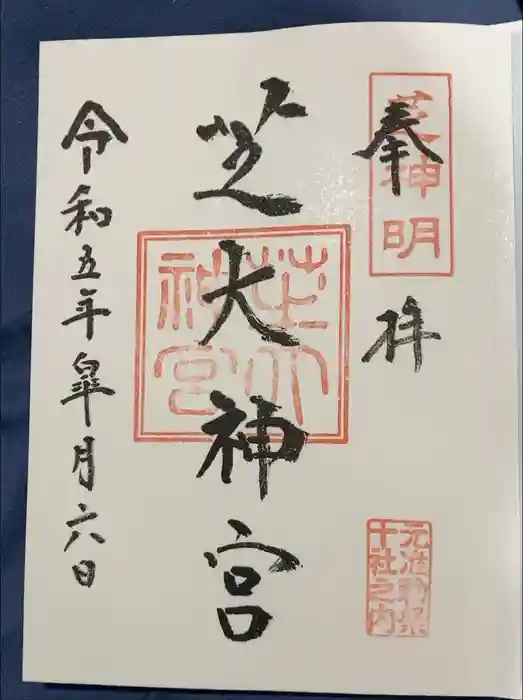 奉拝
芝神明
元准勅祭
十社之内
芝大神宮
芝大
神宮
令和五年皐月六日